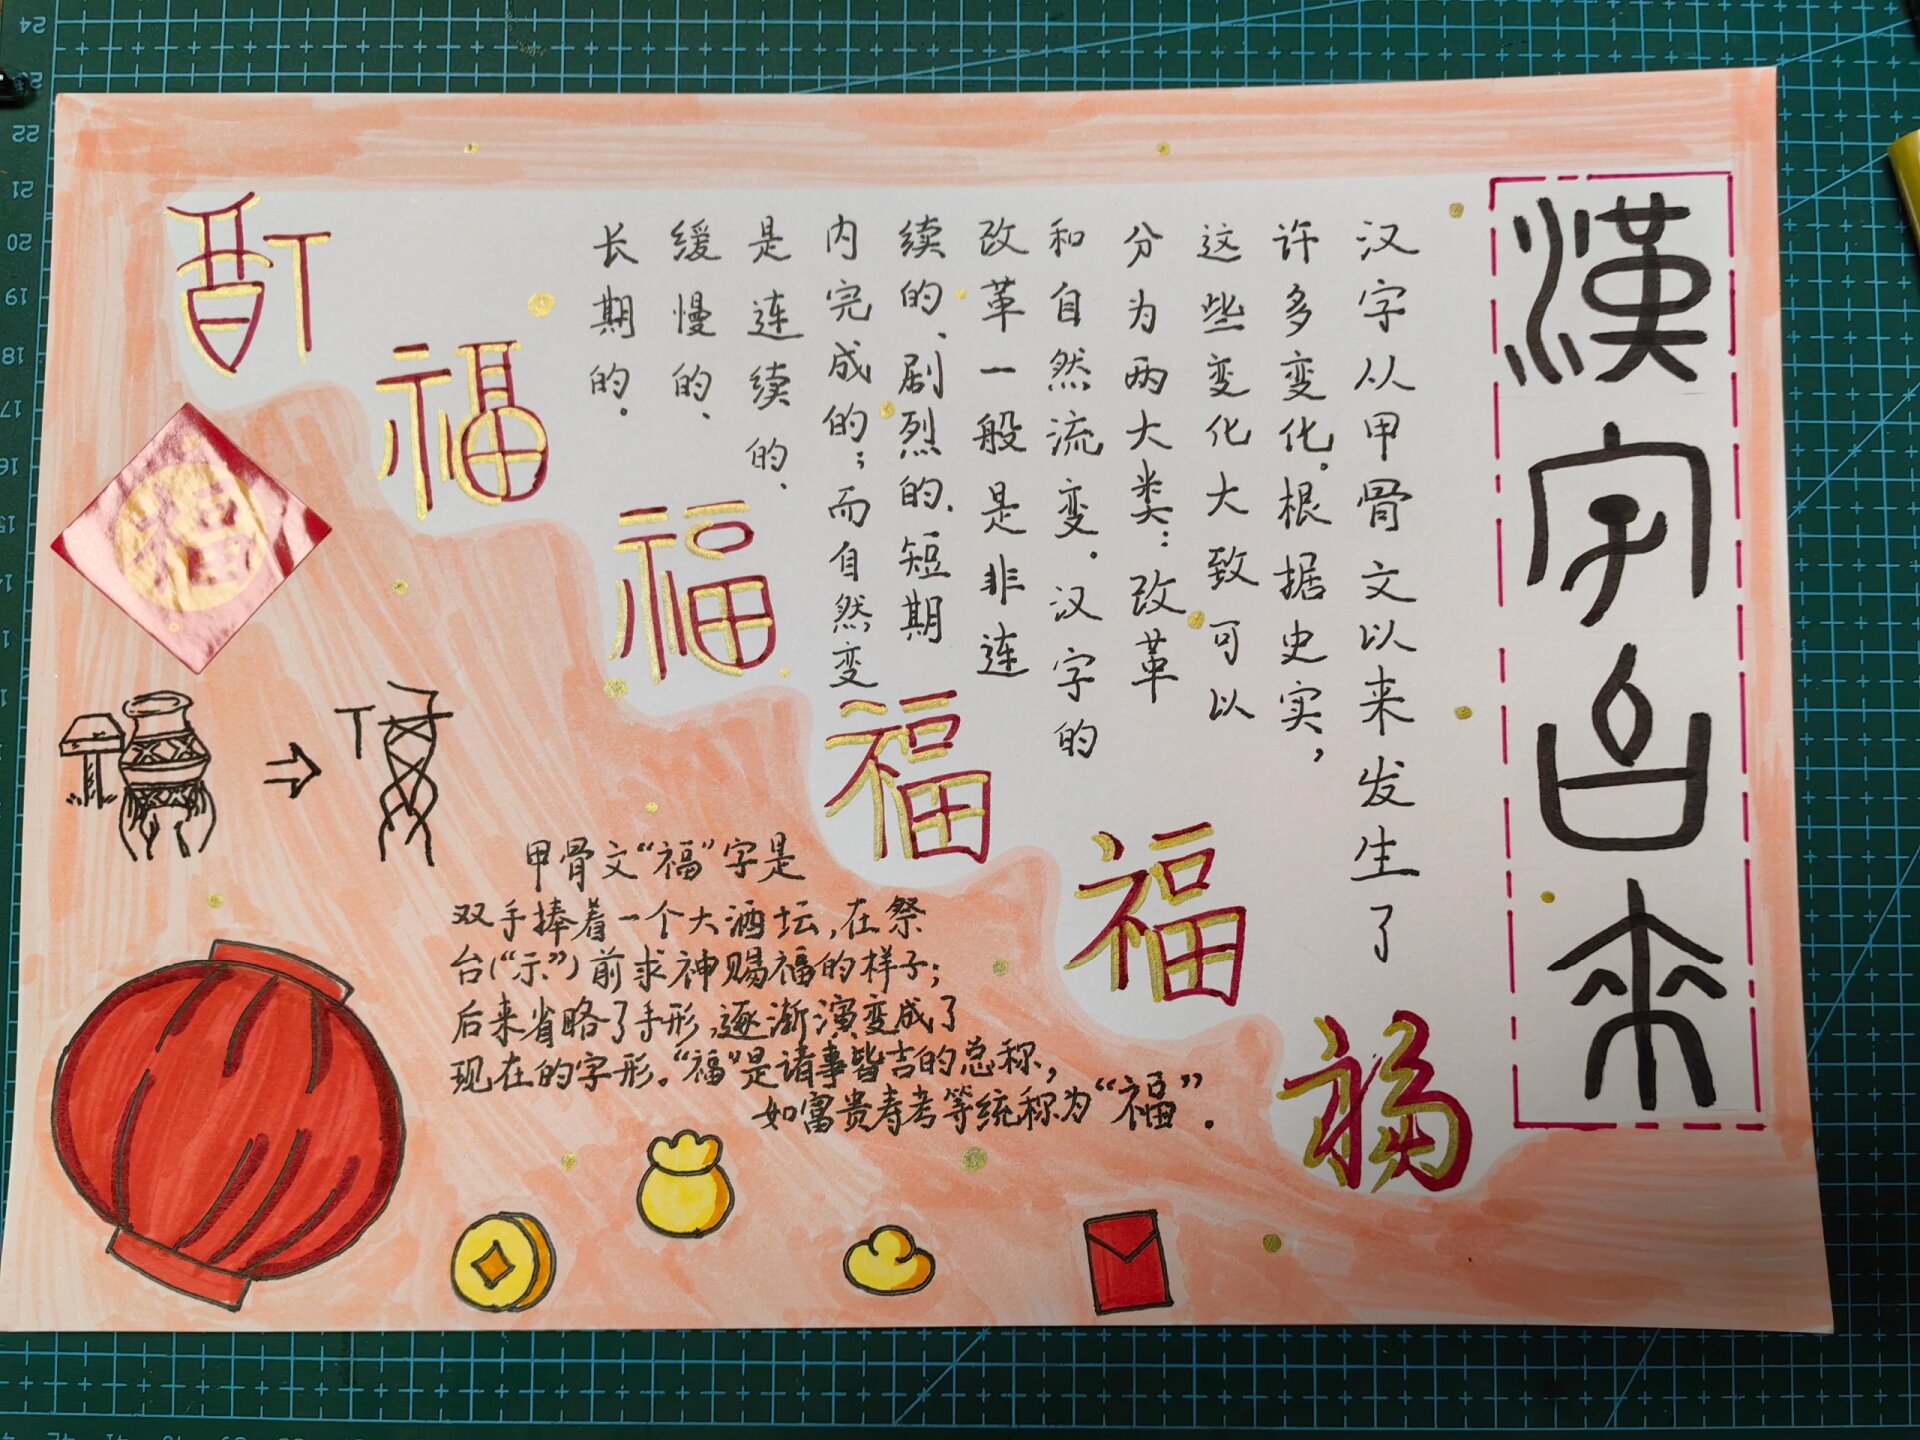 漢字由來
汉字从甲骨文以来发生了
许多变化。根据史实，
这些变化大致可以
分为两大类：改革
和自然流变。汉字的
改革一般是非连
续的、剧烈的、短期
内完成的；而自然变
是连续的、
缓慢的、
长期的。
福
福
福
福
福
福
福
甲骨文“福”字是
双手捧着一个大酒坛，在祭
台（“示”）前求神赐福的样子；
后来省略了手形，逐渐演变成了
现在的字形。“福”是诸事皆吉的总称，
如富贵寿考等统称为“福”。